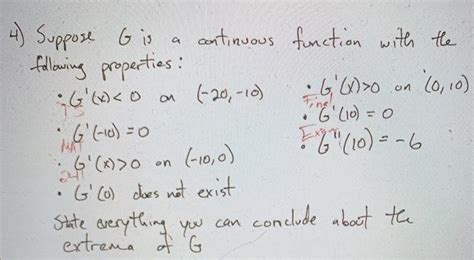 4) Suppose G is a continuous function with the
following properties:
• G'(x)<0 on (-20,-10)
• G'(-10)=0
• G'(x)>0 on (-10,0)
• G'(0) does not exist
• G'(x)>0 on (0,10)
Final
• G'(10)=0
Exam
• G''(10)=-6
State everything you can conclude about the
extrema of G